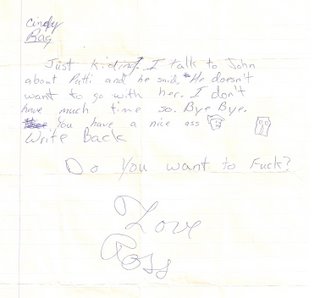 Cindy
Rag
Just kiding. I talk to John
about Patti and he said, "He doesn't
want to go with her. I don't
have much time so. Bye Bye.
You have a nice ass
Write Back
Do you want to Fuck?
Love
Ross